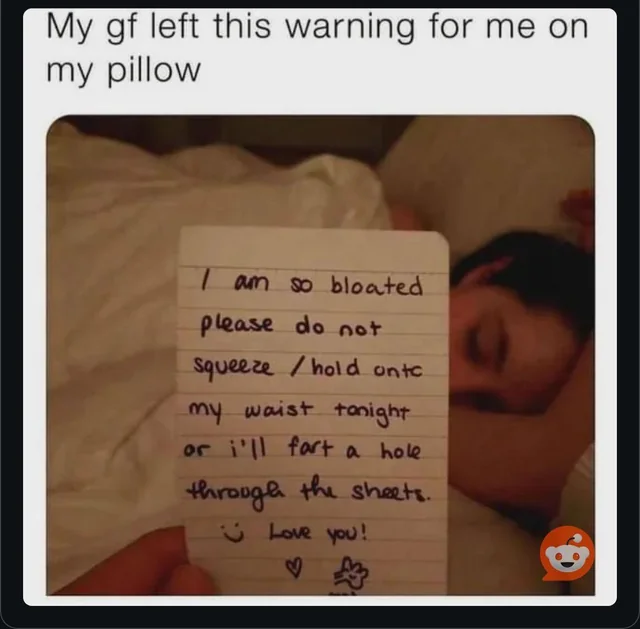 My gf left this warning for me on
my pillow
I am so bloated
please do not
squeeze / hold onto
my waist tonight
or i'll fart a hole
through the sheets.
Love you!